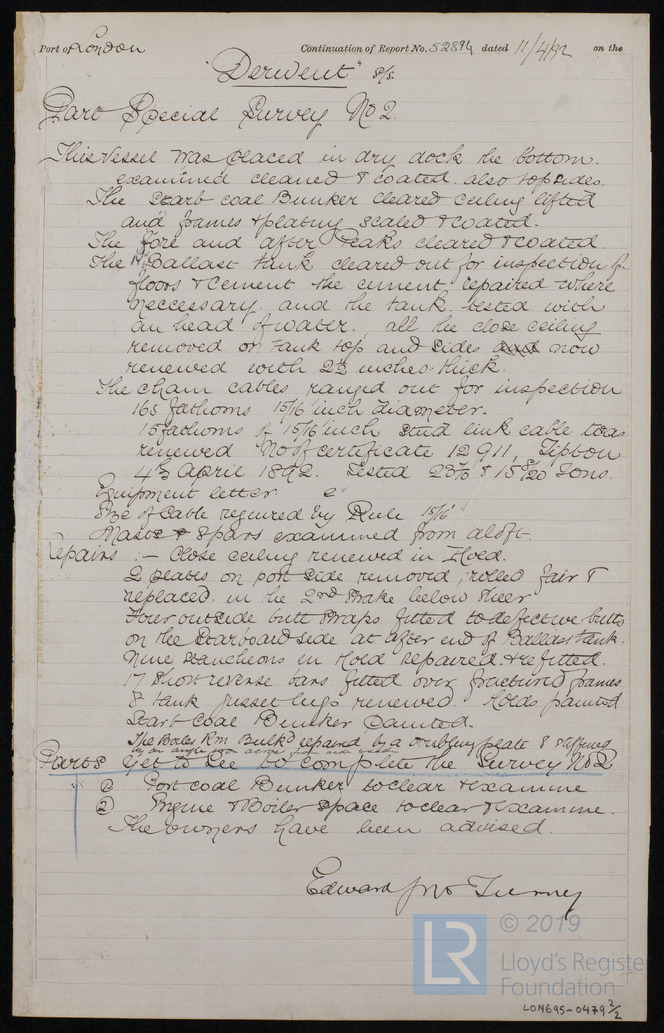 Port of London Continuation of Report No. 52894 dated 11/4/92 on the
"Derwent" s/s.
Part Special Survey No 2.
This vessel was placed in dry dock the bottom
examined cleaned & coated also topsides.
The Starb coal Bunker cleared ceiling lifted
and frames & plating scaled & coated.
The fore and after Peaks cleared & coated.
The Ballast tank cleared out for inspection of
floors & cement the cement repaired where
neccessary and the tank tested with
an head of water, all the close ceiling
removed on tank top and sides and now
renewed with 2½ inches thick.
The chain cables ranged out for inspection
165 fathoms 15/16 inch diameter.
15 fathoms of 15/16 inch stud link cable was
renewed No of certificate 12911, Tipton
4th April 1892. Tested & 15 8/20 Tons.
Equipment letter e
Size of Cable required by Rule 15/16
Masts & Spars examined from aloft.
Repairs :- Close ceiling renewed in Hold.
2 plates on port side removed, rolled fair &
replaced in the 2nd Strake below sheer
Four outside butt straps fitted to defective butts
on the Starboard side at after end of Ballast tank.
Nine stancheons in Hold repaired & refitted.
17 Short reverse bars fitted over fractured frames
8 tank gusset lugs renewed. Holds painted
Starb Coal Bunker Painted.
The Boiler Rm Bulkd repaired by a doubling plate & stiffened
by an angle iron across
Parts yet to see to complete the Survey No 2
① Port coal Bunker to clear & examine
② Engine & Boiler space to clear & examine.
The owners have been advised.
Edward Jno Tierney
© 2019
LR
Lloyd's Register
Foundation
LON695-0479 2/2